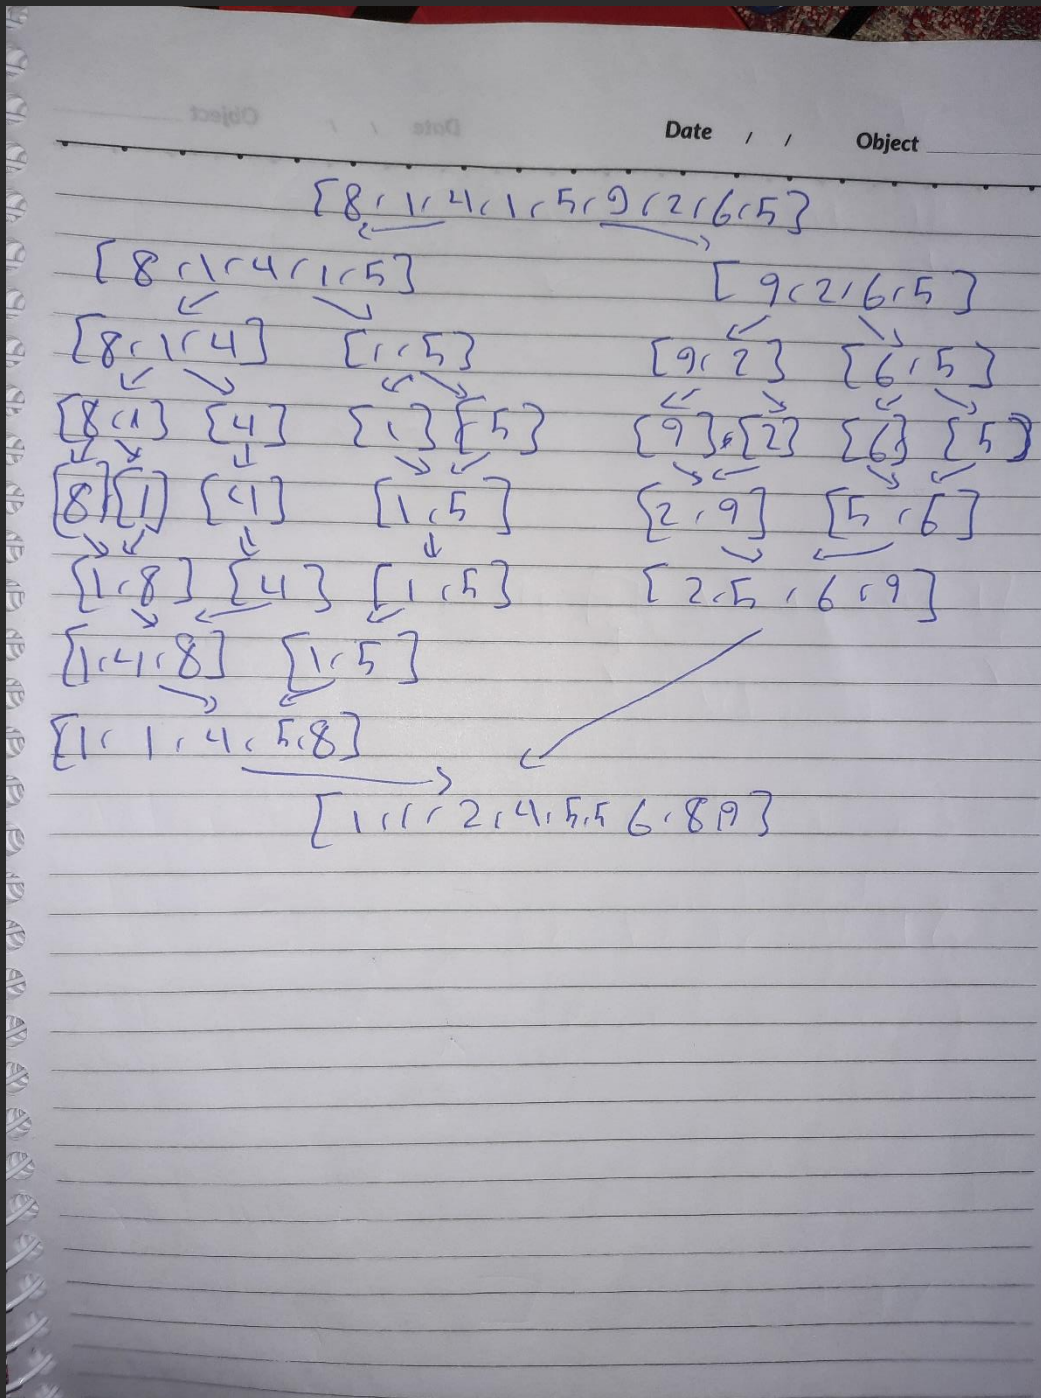 Date / / Object
[8,1,4,1,5,9,2,6,5]
[8,1,4,1,5] [9,2,6,5]
[8,1,4] [1,5] [9,2] [6,5]
[8,1] [4] [1] [5] [9],[2] [6] [5]
[8] [1] [4] [1,5] [2,9] [5,6]
[1,8] [4] [1,5] [2,5,6,9]
[1,4,8] [1,5]
[1,1,4,5,8]
[1,1,2,4,5,5 6,8,9]